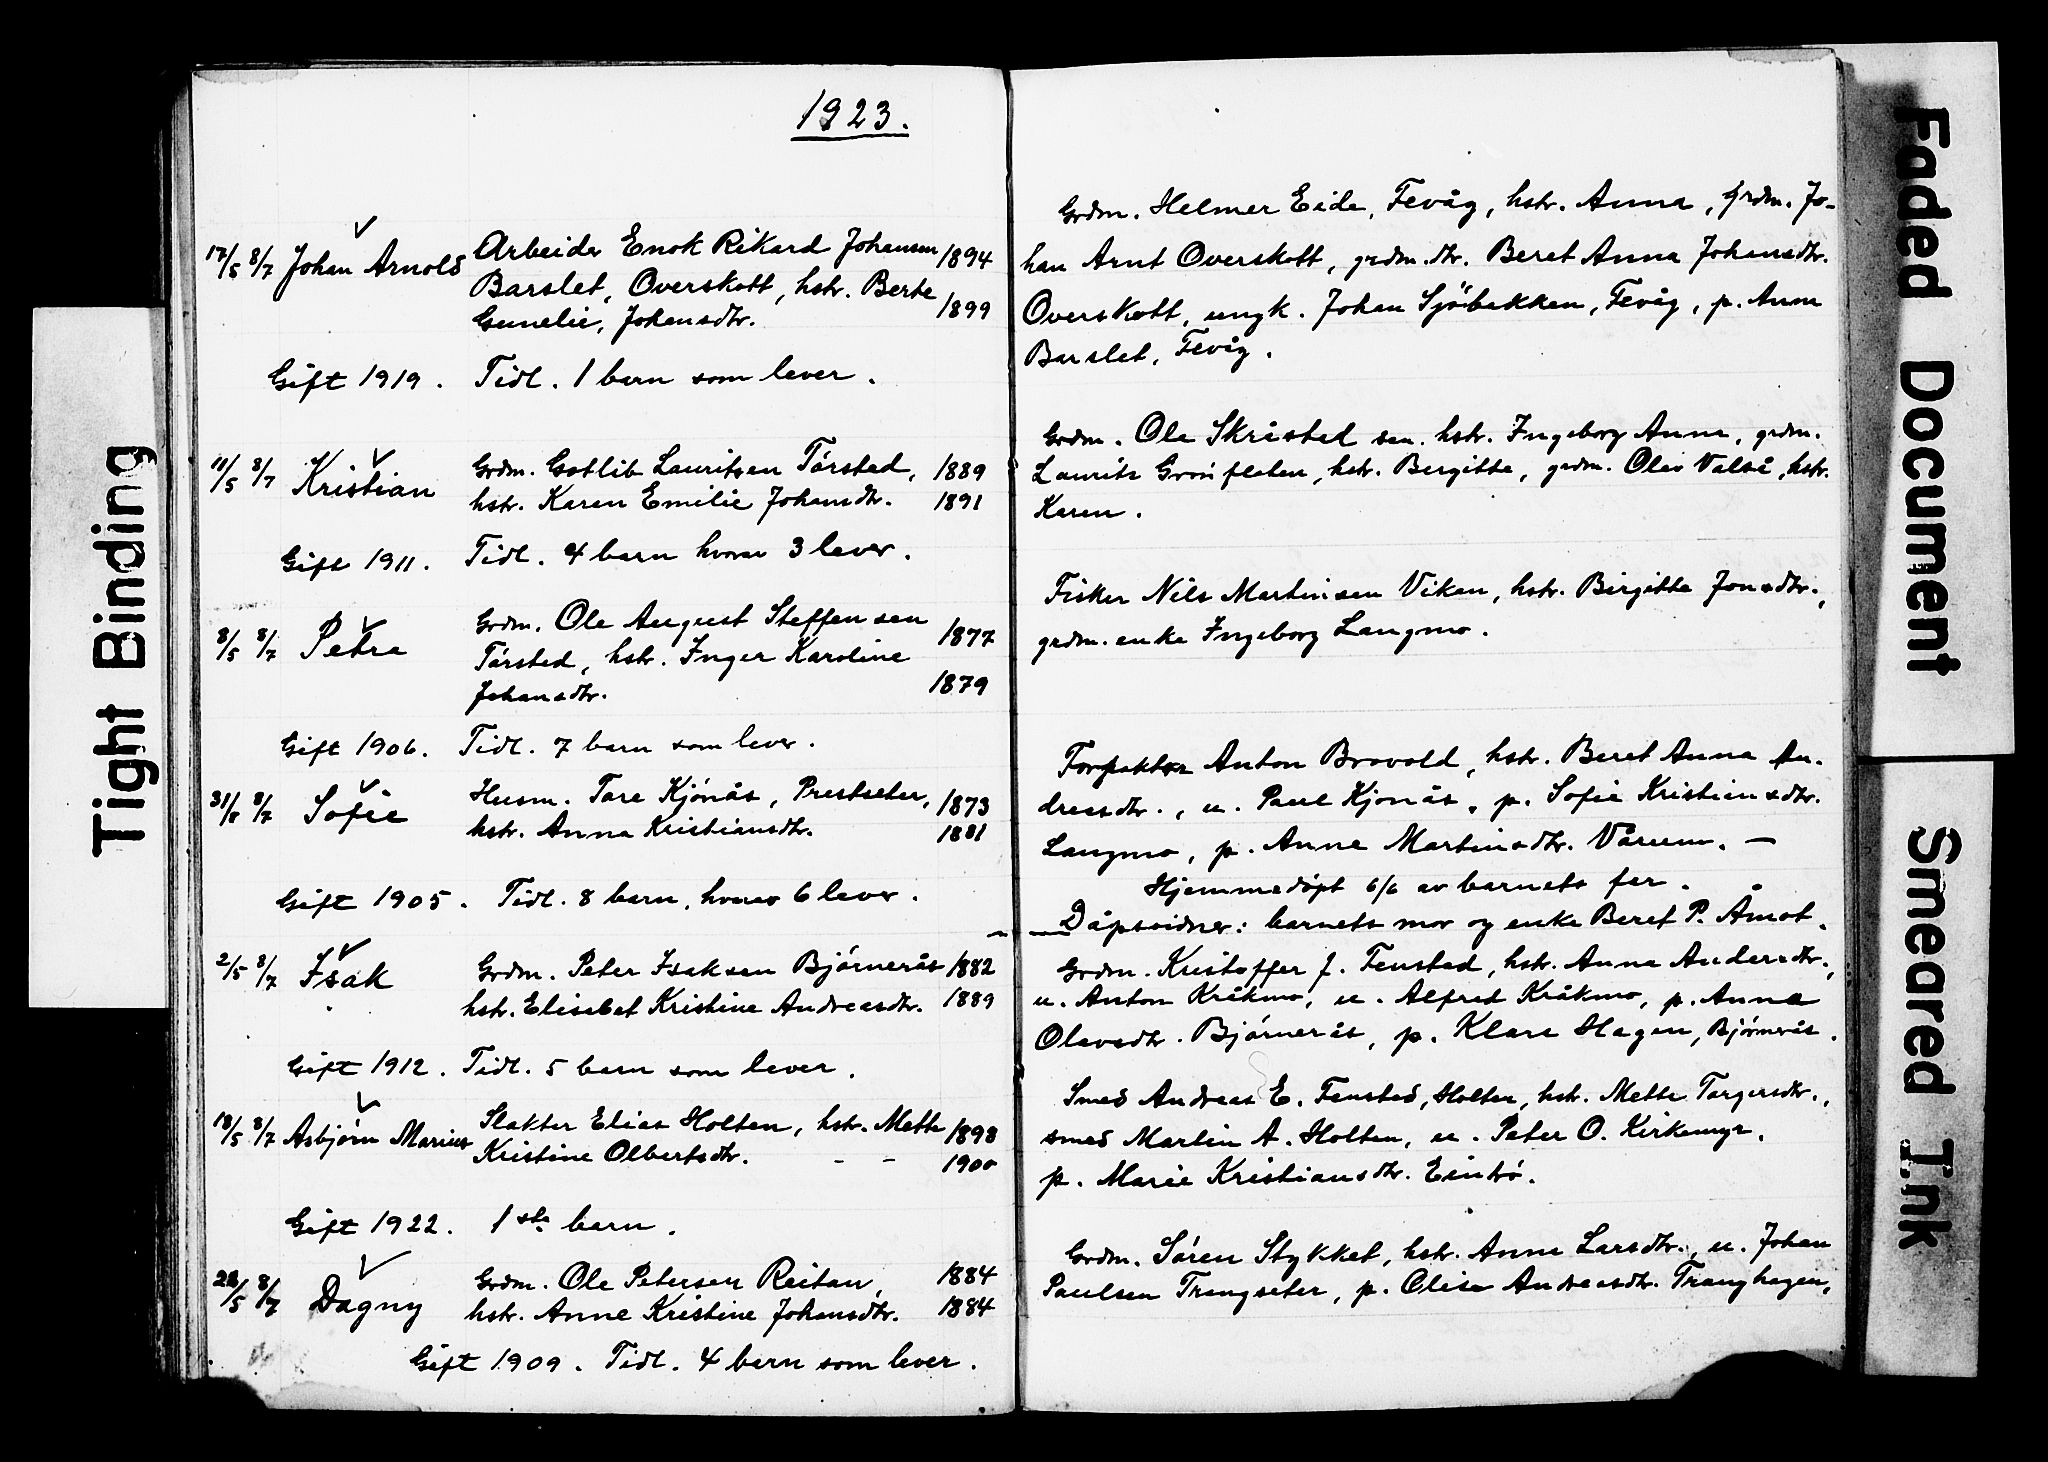 1923.
17/5 8/7 Johan Arnold Arbeider Enok Rikard Johansen 1894
Barslet, Overskott, hstr. Berte
Gunelie, Johansdtr. 1899
Gift 1919. Tidl. 1 barn som lever.
11/5 8/7 Kristian Grdm. Gotlib Lauritsen Tørsted, 1889
hstr. Karen Emilie Johansdtr. 1891
Gift 1911. Tidl. 4 barn hvorav 3 lever.
8/5 8/7 Petra Grdm. Ole August Steffensen 1877
Tørsted, hstr. Inger Karoline
Johansdtr. 1879
Gift 1906. Tidl. 7 barn som lever.
31/5 8/7 Sofie Husm. Tore Kjönås, Prestseter, 1873
hstr. Anna Kristiansdtr. 1881
Gift 1905. Tidl. 8 barn, hvorav 6 lever.
2/5 8/7 Isak Grdm. Peter Isaksen Bjørnerås 1882
hstr. Elisabet Kristine Andreasdtr. 1889
Gift 1912. Tidl. 5 barn som lever.
18/5 8/7 Asbjørn Marius Slakter Elias Holten, hstr. Mette 1898
Kristine Olbertsdtr. - - 1900
Gift 1922. 1ste barn.
22/5 8/7 Dagny Grdm. Ole Petersen Reitan, 1884
hstr. Anne Kristine Johansdtr. 1884
Gift 1909. Tidl. 4 barn som lever.
Grdm. Helmer Eide, Fevåg, hstr. Anna, grdm. Jo-
han Arnt Overskott, grdm.dtr. Beret Anna Johansdtr.
Overskott, ungk. Johan Sjöbakken, Fevåg, p. Anna
Barslet, Fevåg.
Grdm. Ole Skristad sen. hstr. Ingeborg Anna, grdm.
Laurits Grönfleten, hstr. Bergitte, grdm. Olav Valså, hstr.
Karen.
Fisker Nils Martinsen Viken, hstr. Birgitte Jonsdtr.,
grdm.enke Ingeborg Langmo.
Forpakter Anton Brovold, hstr. Beret Anna An-
dreasdtr., u. Paul Kjonås, p. Sofie Kristiansdtr.
Langmo, p. Anne Martinsdtr. Vårum. —
Hjemmedøpt 6/6 av barnets far.
— Dåpsvidner: barnets mor og enke Beret P. Åmot.
Grdm. Kristoffer J. Fenstad, hstr. Anna Andersdtr.,
u. Anton Kråkmo, u. Alfred Kråkmo, p. Anna
Olavsdtr. Bjørnerås, p. Klara Hagen, Bjørnerås.
Smed Andreas E. Fenstad, Holten, hstr. Mette Torgersdtr.,
smed Martin A. Holten, u. Peter O. Kirkemyr,
p. Marie Kristiansdtr. Eintrö.
Grdm. Søren Stykket, hstr. Anna Larsdtr., u. Johan
Paulsen Trangseter, p. Elise Andreasdtr. Tranghagen,
Tight Binding
Faded Document
Smeared Ink